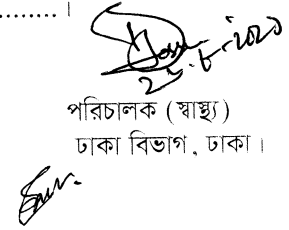 পরিচালক (স্বাস্থ্য)
ঢাকা বিভাগ, ঢাকা।